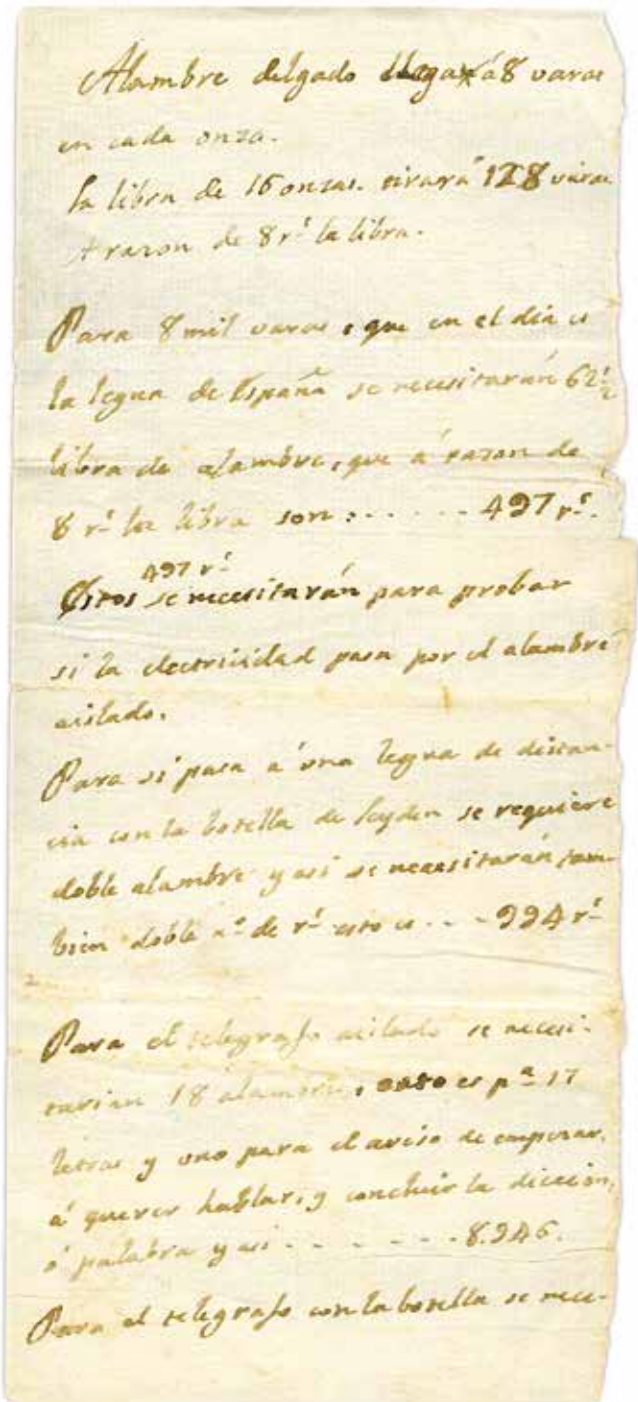 Alambre delgado llega á 8 varas
en cada onza.
la libra de 16 onzas. tirará 128 varas
A razon de 8 r.s la libra.
Para 8 mil varas, que en el dia es
la legua de España se necesitarán 62 1/2
libra de alambre, que á razon de
8 r.s la libra son: - - - - - 497 r.s
497 r.s
Estos se necesitarán para probar
si la electricidad pasa por el alambre
aislado.
Para si pasa á una legua de distan-
cia con la botella de leyden se requiere
doble alambre y asi se necesitarán tam-
bien doble n.o de r.s esto es - - - 994 r.s
Para el telegrafo aislado se necesi-
tarian 18 alambres, esto es p.a 17
letras y uno para el aviso de empezar,
á querer hablar, y concluir la diccion,
ó palabra y asi - - - - - - 8.946.
Para el telegrafo con la botella se nece-